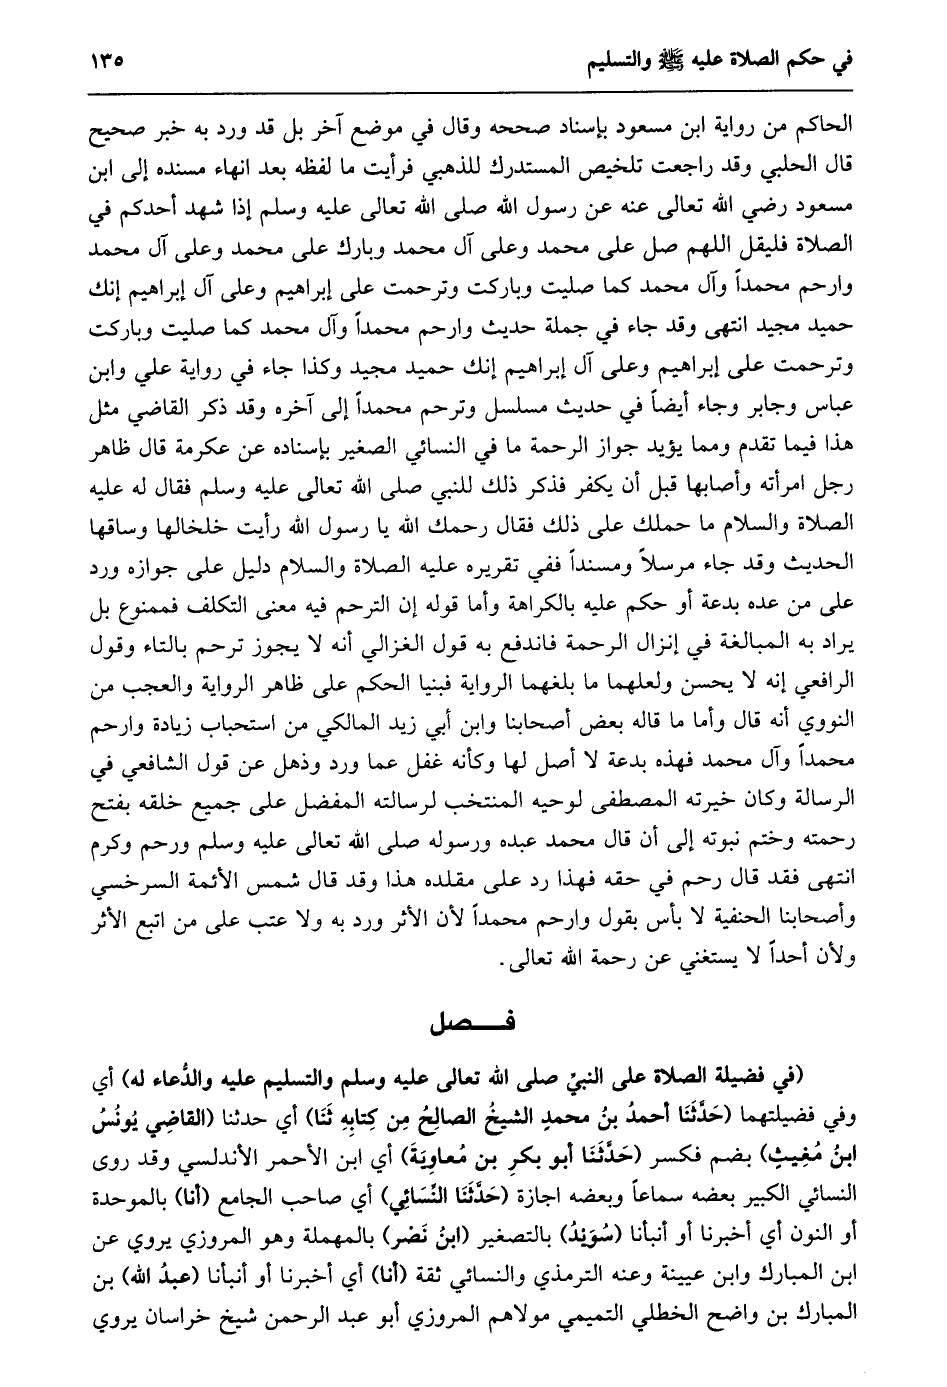 في حكم الصلاة عليه ﷺ والتسليم ١٣٥
الحاكم من رواية ابن مسعود بإسناد صححه وقال في موضع آخر بل قد ورد به خبر صحيح
قال الحلبي وقد راجعت تلخيص المستدرك للذهبي فرأيت ما لفظه بعد انهاء مسنده إلى ابن
مسعود رضي الله تعالى عنه عن رسول الله صلى الله تعالى عليه وسلم إذا شهد أحدكم في
الصلاة فليقل اللهم صل على محمد وعلى آل محمد وبارك على محمد وعلى آل محمد
وارحم محمداً وآل محمد كما صليت وباركت وترحمت على إبراهيم وعلى آل إبراهيم إنك
حميد مجيد انتهى وقد جاء في جملة حديث وارحم محمداً وآل محمد كما صليت وباركت
وترحمت على إبراهيم وعلى آل إبراهيم إنك حميد مجيد وكذا جاء في رواية علي وابن
عباس وجابر وجاء أيضاً في حديث مسلسل وترحم محمداً إلى آخره وقد ذكر القاضي مثل
هذا فيما تقدم ومما يؤيد جواز الرحمة ما في النسائي الصغير بإسناده عن عكرمة قال ظاهر
رجل امرأته وأصابها قبل أن يكفر فذكر ذلك للنبي صلى الله تعالى عليه وسلم فقال له عليه
الصلاة والسلام ما حملك على ذلك فقال رحمك الله يا رسول الله رأيت خلخالها وساقها
الحديث وقد جاء مرسلاً ومسنداً ففي تقريره عليه الصلاة والسلام دليل على جوازه ورد
على من عده بدعة أو حكم عليه بالكراهة وأما قوله إن الترحم فيه معنى التكلف فممنوع بل
يراد به المبالغة في إنزال الرحمة فاندفع به قول الغزالي أنه لا يجوز ترحم بالتاء وقول
الرافعي إنه لا يحسن ولعلهما ما بلغهما الرواية فبنيا الحكم على ظاهر الرواية والعجب من
النووي أنه قال وأما ما قاله بعض أصحابنا وابن أبي زيد المالكي من استحباب زيادة وارحم
محمداً وآل محمد فهذه بدعة لا أصل لها وكأنه غفل عما ورد وذهل عن قول الشافعي في
الرسالة وكان خيرته المصطفى لوحيه المنتخب لرسالته المفضل على جميع خلقه بفتح
رحمته وختم نبوته إلى أن قال محمد عبده ورسوله صلى الله تعالى عليه وسلم ورحم وكرم
انتهى فقد قال رحم في حقه فهذا رد على مقلده هذا وقد قال شمس الأئمة السرخسي
وأصحابنا الحنفية لا بأس بقول وارحم محمداً لأن الأثر ورد به ولا عتب على من اتبع الأثر
ولأن أحداً لا يستغني عن رحمة الله تعالى.
فـــصل
(في فضيلة الصلاة على النبيِّ صلى الله تعالى عليه وسلم والتسليم عليه والدُّعاء له) أي
وفي فضيلتهما (حَدَّثَنَا أحمدُ بنُ محمدٍ الشيخُ الصالحُ مِن كِتابِهِ ثَنَا) أي حدثنا (القاضِي يُونُسُ
ابنُ مُغِيثٍ) بضم فكسر (حَدَّثَنَا أبو بكرِ بن مُعاوِيَةَ) أي ابن الأحمر الأندلسي وقد روى
النسائي الكبير بعضه سماعاً وبعضه اجازة (حَدَّثَنَا النِّسَائِي) أي صاحب الجامع (أنا) بالموحدة
أو النون أي أخبرنا أو أنبأنا (سُوَيْدُ) بالتصغير (ابنُ نَصْرٍ) بالمهملة وهو المروزي يروي عن
ابن المبارك وابن عيينة وعنه الترمذي والنسائي ثقة (أنا) أي أخبرنا أو أنبأنا (عبدُ الله) بن
المبارك بن واضح الخطلي التميمي مولاهم المروزي أبو عبد الرحمن شيخ خراسان يروي